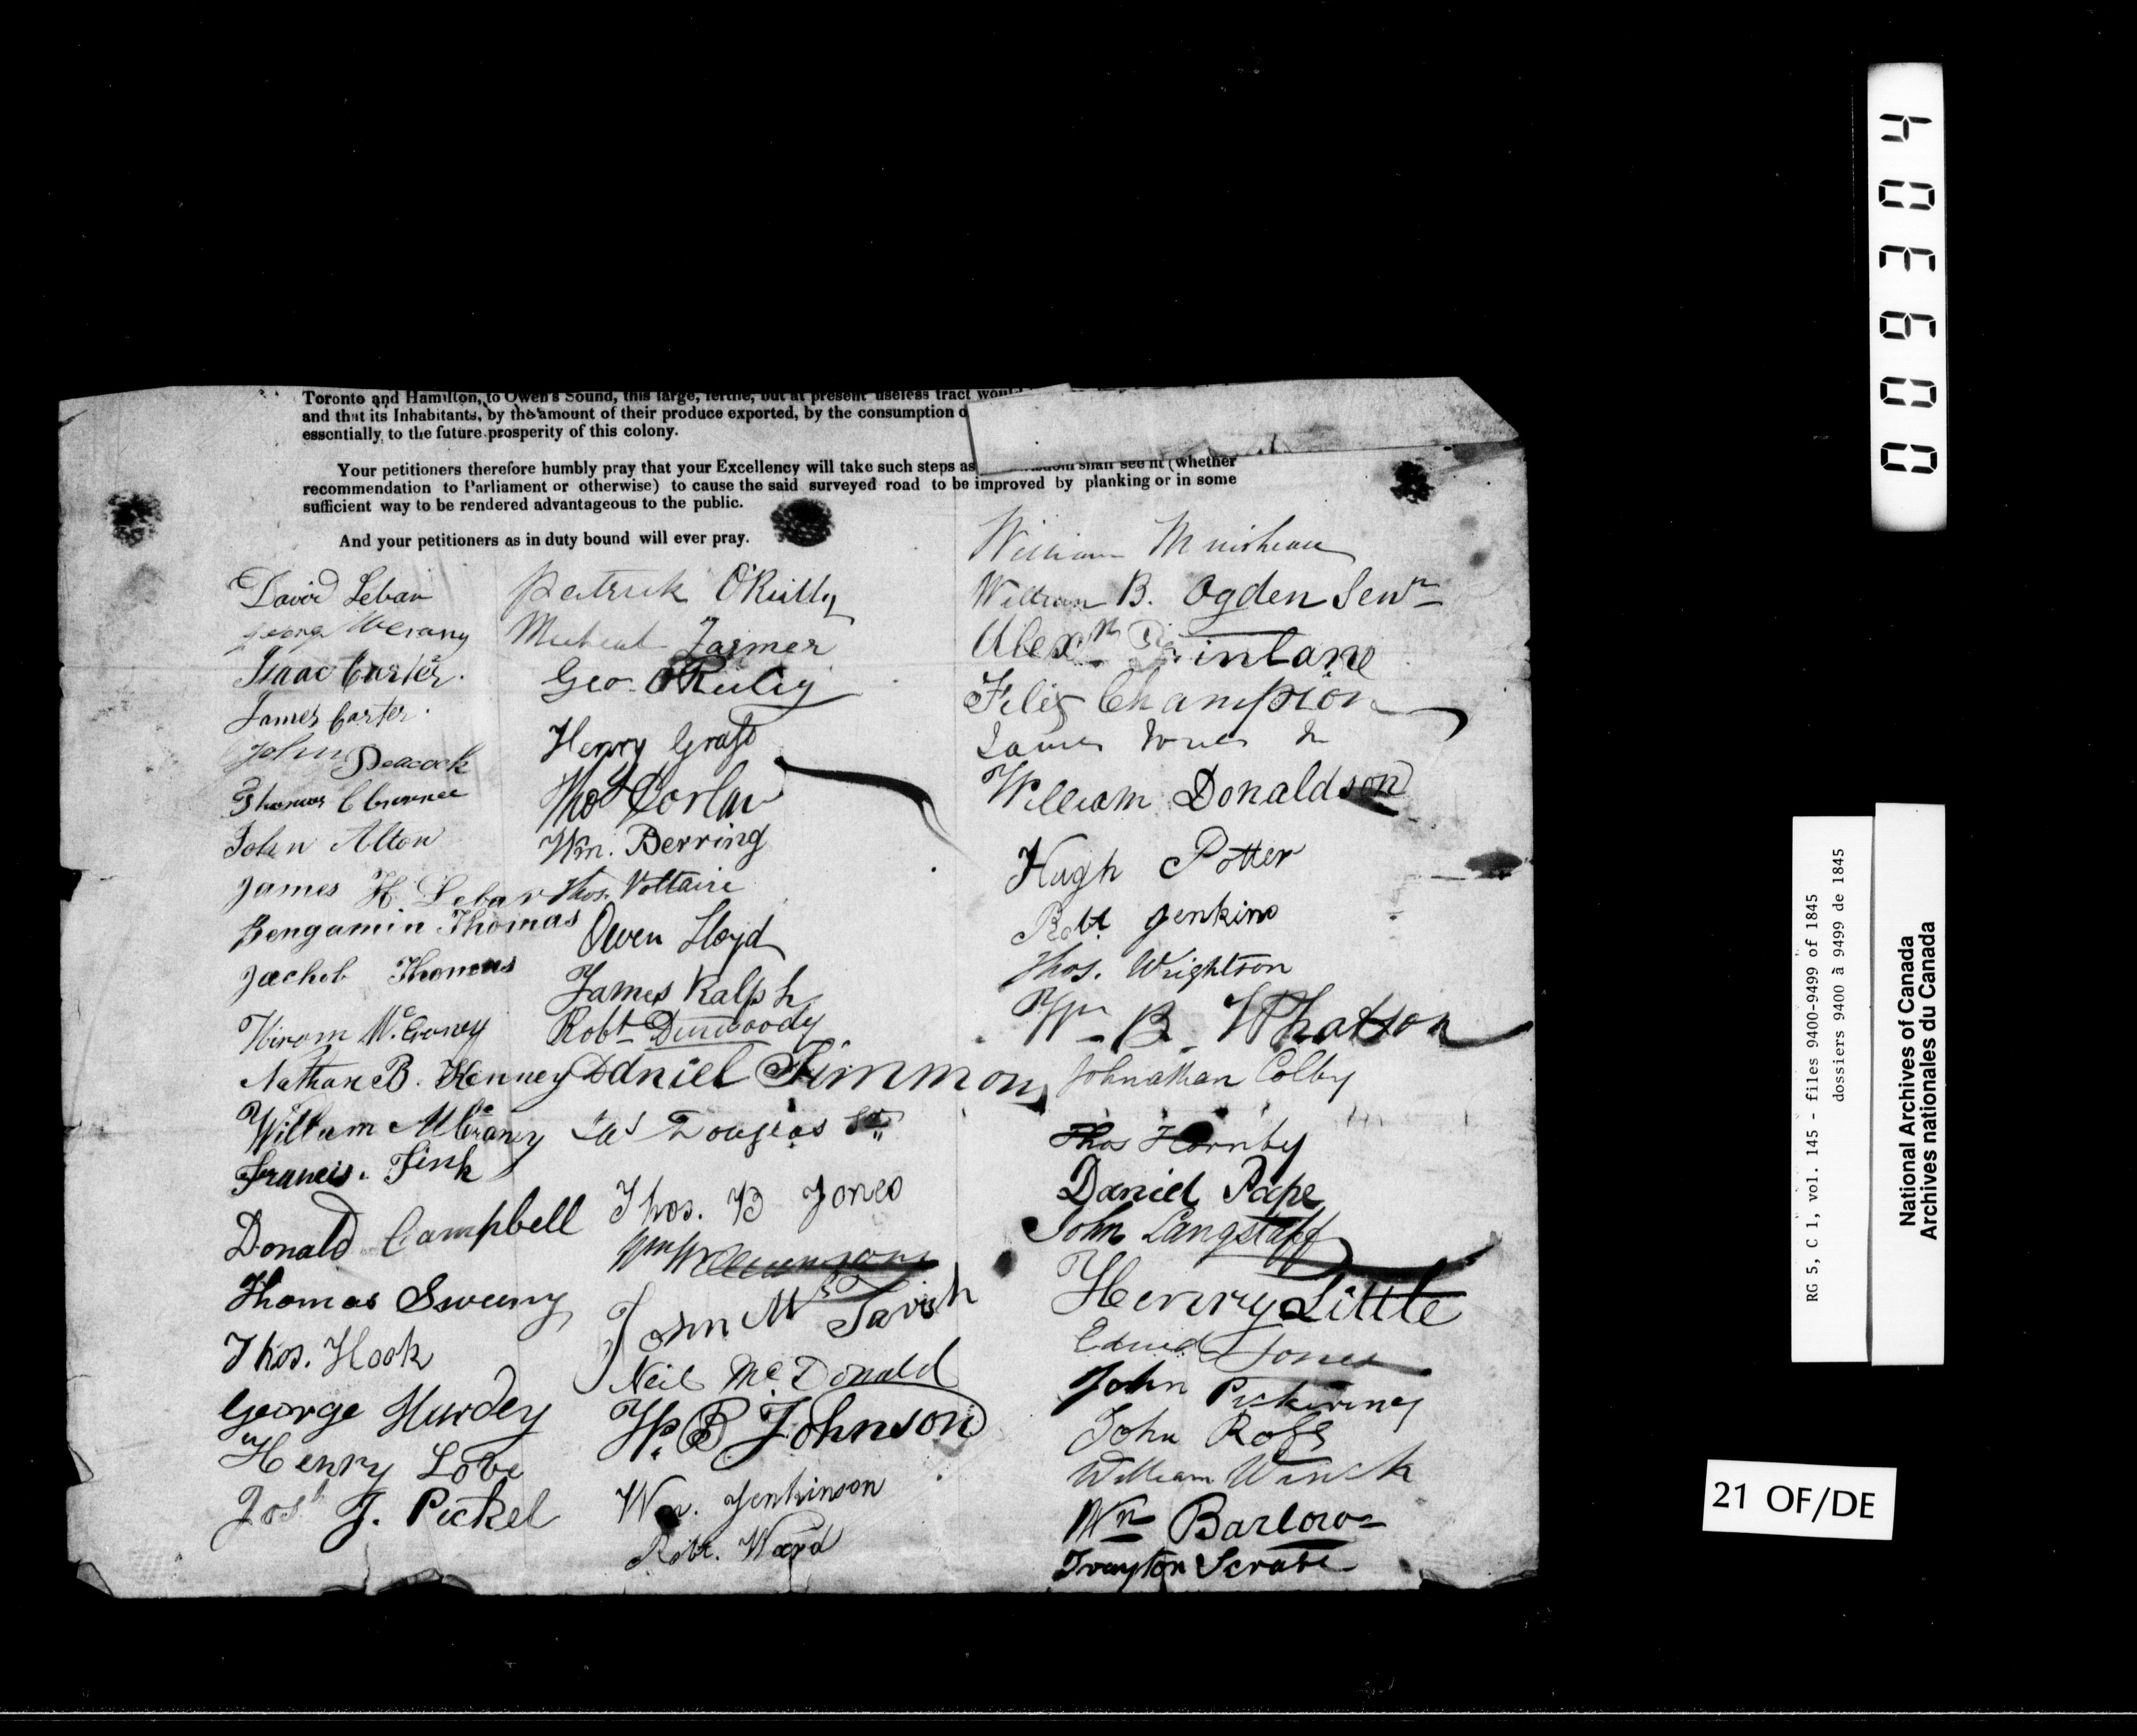 Toronto and Hamilton, to Owen's Sound, this large, fertile, but at present useless tract
and that its Inhabitants, by the amount of their produce exported, by the consumption
essentially to the future prosperity of this colony.
Your petitioners therefore humbly pray that your Excellency will take such steps as shall see fit (whether
recommendation to Parliament or otherwise) to cause the said surveyed road to be improved by planking or in some
sufficient way to be rendered advantageous to the public.
And your petitioners as in duty bound will ever pray.
David Lebar
George McCrany
Isaac Carter.
James Carter.
John Peacock
Thomas
John Alton
James H. Lebar
Bengamin Thomas
Jachob Thomas
Hiram McCraney
Nathan B. Kenney
William McCraney
Francis. Fink
Donald Campbell
Thomas Sweeny
Thos. Hook
George Hurdey
Henry Love
Josh J. Pickel
Patrick O'Reilly
Micheal Farmer
Geo O'Reiley
Henry Graft
Thos
Wm. Berring
Thos. Voltaire
Owen Lloyd
James Ralph
Robt Dunwoody
Daniel Simmons
Jas Douglas Sr
Thos. B Jones
Wm Williamson
John McTavish
Neil McDonald
W. B Johnson
Wm. Jenkinson
Robt. Ward
William
William B. Ogden Senr
Alexr
Felix Champion
James Jones Jr
William Donaldson
Hugh Potter
Robt Jenkins
Thos. Wrightson
Wm B. Whatson
Johnathan Colby
Thos Hornby
Daniel Pape
John Langstaff
Henry Little
Edwid Jones
John Pickering
John Ross
William Winck
Wm Barlow
Trayton Scrase
009304
RG 5, C 1, vol. 145 - files 9400-9499 of 1845
dossiers 9400 à 9499 de 1845
National Archives of Canada
Archives nationales du Canada
21 OF/DE